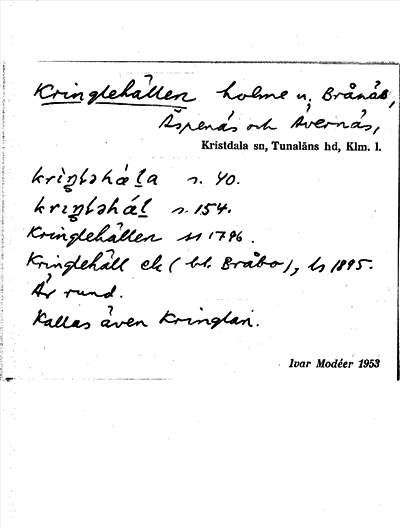 Kringlehällen holme n. Brånäs,
Äspenäs och Ävernäs,
Kristdala sn, Tunaläns hd, Klm. l.
s. 40.
s. 154.
Kringlehällen ss 1796.
Kringlehäll ek (bl. Bråbo), ls 1895.
Är rund.
Kallas även Kringlan.
Ivar Modéer 1953